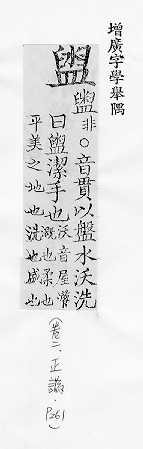 增廣字學舉隅
盥
盥非○音貫以盤水沃洗
曰盥潔手也沃音屋灌
溉也柔也
平美之地也洗也盛也
(卷二、正譌、P261)